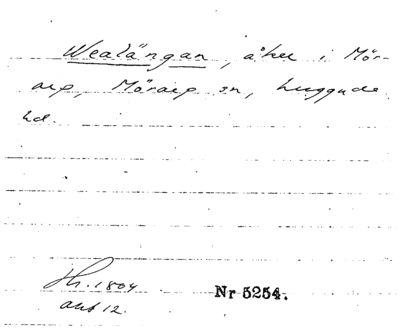 Wealängan, åker i Mör-
arp, Mörarp sn, Luggude
hd.
Sk. 1804
akt 12.
Nr 5254.